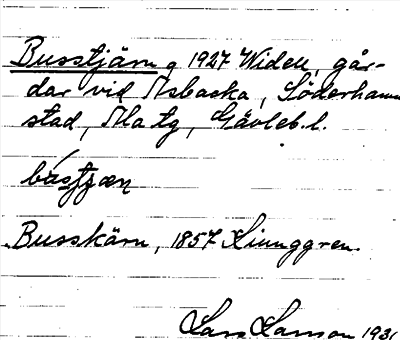 Busstjärn, 1927 Widell, går-
dar vid Åsbacka, Söderhamn
stad, Ala tg, Gävleb. l.
Busskärn, 1857 Ljunggren.
Lars Larsson 1931